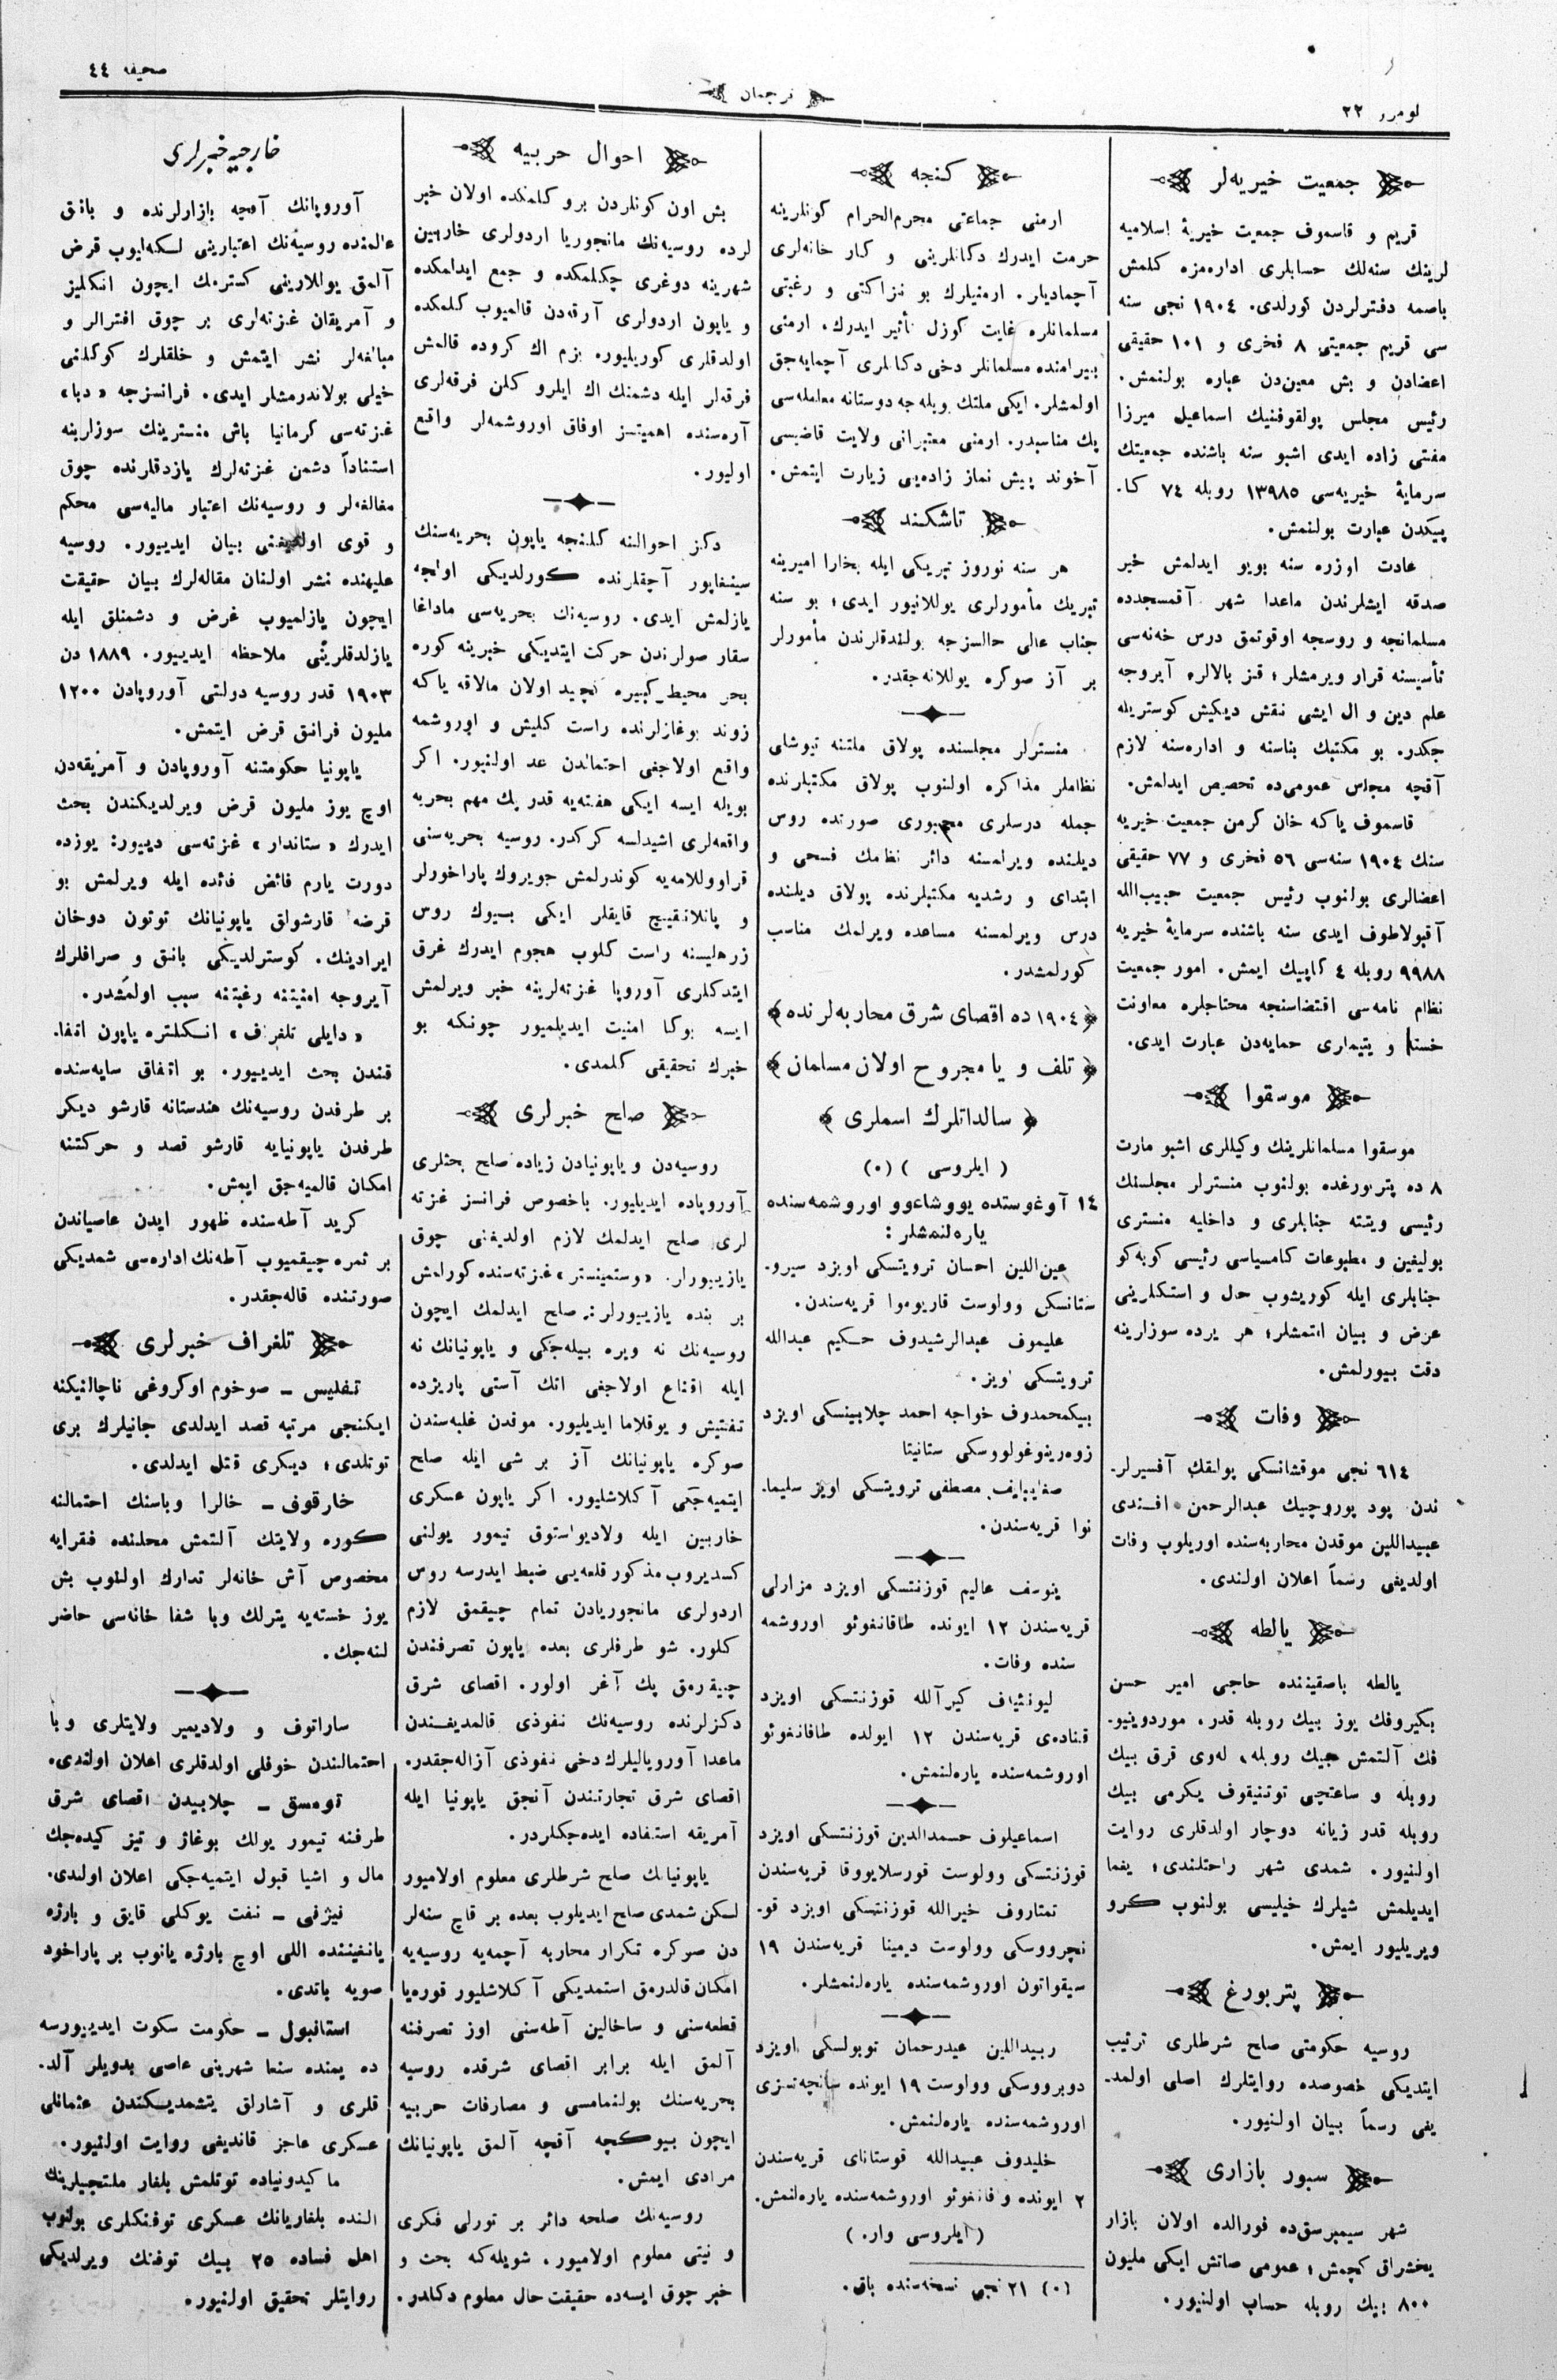 نومرو ٢٢
ترجمان
صحيفه ٤٤
جمعيت خيريه‌لر
قريم و قاسموف جمعيت خيريۀ اسلاميه
لرينك سنه‌لك حسابلری اداره‌مزه كلمش
باصمه دفترلردن كورلدی. ١٩٠٤ نجی سنه
سی قريم جمعيتی ٨ فخری و ١٠١ حقيقی
اعضادن و بش معين‌دن عباره بولنمش.
رئيس مجلس پولقوفنيك اسماعيل ميرزا
مفتی زاده ايدی اشبو سنه باشنده جمعيتك
سرمايۀ خيريه‌سی ١٣٩٨٥ روبله ٧٤ كا.
پيكدن عبارت بولنمش.
عادت اوزره سنه بويو ايدلمش خير
صدقه ايشلرندن ماعدا شهر آقمسجدده
مسلمانجه و روسجه اوقوتمق درس خه‌نه‌سی
تأسيسنه قرار ويرمشلر؛ قز بالالره آيروجه
علم دين و ال ايشی نقش ديكيش كوستريله
جكدر. بو مكتبك بناسنه و اداره‌سنه لازم
آقچه مجلس عمومی‌ده تخصيص ايدلمش.
قاسموف ياكه خان كرمن جمعيت خيريه
سنك ١٩٠٤ سنه‌سی ٥٦ فخری و ٧٧ حقيقی
اعضالری بولنوب رئيس جمعيت حبيب‌الله
آقبولاطوف ايدی سنه باشنده سرمايۀ خيريه
٩٩٨٨ روبله ٤ كاپيك ايمش. امور جمعيت
نظام نامه‌سی اقتضاسنجه محتاجلره معاونت
خسته و يتيملری حمايه‌دن عبارت ايدی.
موسقوا
موسقوا مسلمانلرينك وكيللری اشبو مارت
٨ ده پتربورغده بولنوب منسترلر مجلسنك
رئيسی ويتته جنابلری و داخليه منستری
بوليغين و مطبوعات كاميسياسی رئيسی كوبه‌كو
جنابلری ايله كوريشوب حال و استكلرينی
عرض و بيان ايتمشلر؛ هر يرده سوزلرينه
دقت بيورلمش.
وفات
٦١٤ نجی موقشانسكی پولقك آفسيرلر-
ندن پود پوروچيك عبدالرحمن افندی
عبيداللين موقدن محاربه‌سنده اوريلوب وفات
اولديغی رسماً اعلان اولندی.
يالطه
يالطه باصقيننده حاجی امير حسن
بكيروفك يوز بيك روبله قدر، موردوينو-
فك آلتمش بيك روبله، له‌وی قرق بيك
روبله و ساعتچی توتنيقوف يكرمی بيك
روبله قدر زيانه دوچار اولدقلری روايت
اولنيور. شمدی شهر راحتلندی؛ يغما
ايديلمش شيلرك خيليسی بولنوب كرو
ويريليور ايمش.
پتربورغ
روسيه حكومتی صلح شرطلری ترتيب
ايتديكی خصوصده روايتلرك اصلی اولمد-
يغی رسماً بيان اولنيور.
سبور بازاری
شهر سيمبرسق‌ده فورالده اولان بازار
يخشراق كچمش؛ عمومی صاتش ايكی مليون
٨٠٠ بيك روبله حساب اولنيور.
كنجه
ارمنی جماعتی محرم‌الحرام كونلرينه
حرمت ايدرك دكانلرينی و كار خانه‌لری
آچماديلر. ارمنيلرك بو نزاكتی و رغبتی
مسلمانلره غايت كوزل تأثير ايدرك، ارمنی
بيرامنده مسلمانلر دخی دكانلری آچمايه‌جق
اولمشلر. ايكی ملتك ويله‌جه دوستانه معامله‌سی
پك مناسبدر. ارمنی معتبرانی ولايت قاضيسی
آخوند پيش نماز زاده‌يی زيارت ايتمش.
تاشكند
هر سنه نوروز تبريكی ايله بخارا اميرينه
تبريك مأمورلری يوللانيور ايدی؛ بو سنه
جناب عالی حالسزجه بولندقلرندن مأمورلر
بر آز صوكره يوللانه‌جقدر.
منسترلر مجلسنده پولاق ملتنه تيوشلی
نظاملر مذاكره اولنوب پولاق مكتبلرنده
جمله درسلری مجبوری صورتده روس
ديلنده ويرلمسنه دائر نظامك فسحی و
ابتدای و رشديه مكتبلرنده پولاق ديلنده
درس ويرلمسنه مساعده ويرلمك مناسب
كورلمشدر.
﴿ ١٩٠٤ ده اقصای شرق محاربه‌لرنده ﴾
﴿ تلف و يا مجروح اولان مسلمان ﴾
﴿ سالداتلرك اسملری ﴾
( ايلروسی ) (٠)
١٤ آوغوستده يووشاءوو اوروشمه‌سنده
ياره‌لنمشلر :
عين‌اللين احسان ترويتسكی اويزد سيرو-
ستانسكی وولوست قاريوموا قريه‌سندن.
عليموف عبدالرشيدوف حكيم عبدالله
ترويتسكی اويز.
بيكمحمدوف خواجه احمد چلابينسكی اويزد
زوه‌رينوغولووسكی ستانيتا
صفايبايف مصطفی ترويتسكی اويز سليما-
نوا قريه‌سندن.
ينوسف عاليم قوزنتسكی اويزد مزارلی
قريه‌سندن ١٢ ايونده طاقانغوئو اوروشمه
سنده وفات.
ليونثياف كيرآلله قوزنتسكی اويزد
قناده‌ی قريه‌سندن ١٢ ايولده طاقانغوئو
اوروشمه‌سنده ياره‌لنمش.
اسماعيلوف حسمدالدين قوزنتسكی اويزد
قوزنتسكی وولوست قورسلايووقا قريه‌سندن
تمتاروف خيرالله قوزنتسكی اويزد قو-
نچرووسكی وولوست ديمينا قريه‌سندن ١٩
سيقواتون اوروشمه‌سنده ياره‌لنمشلر.
ربيداللين عيدرحمان توبولسكی اويزد
دوبرووسكی وولوست ١٩ ايونده سانچه‌تسزی
اوروشمه‌سنده ياره‌لنمش.
خليدوف عبيدالله قوستانای قريه‌سندن
٢ ايونده وفانغوئو اوروشمه‌سنده ياره‌لنمش.
( ايلروسی وار. )
(٠) ٢١ نجی نسخه‌سنده باق.
احوال حربيه
بش اون كونلردن برو كلمكده اولان خبر
لرده روسيه‌نك مانجوريا اردولری خاربين
شهرينه دوغری چكلمكده و جمع ايدلمكده
و ياپون اردولری آرقه‌دن قالميوب كلمكده
اولدقلری كوريليور. بزم اك كروده قالمش
فرقه‌لر ايله دشمنك اك ايلرو كلن فرقه‌لری
آره‌سنده اهميتسز اوفاق اوروشمه‌لر واقع
اوليور.
دكز احوالنه كلنجه ياپون بحريه‌سنك
سينغاپور آچقلرنده كورلديكی اولجه
يازلمش ايدی. روسيه‌نك بحريه‌سی ماداغا
سقار صولرندن حركت ايتديكی خبرينه كوره
بحر محيط كبيره كچيد اولان مالاقه ياكه
زوند بوغازلرنده راست كليش و اوروشمه
واقع اولاجغی احتمالدن عد اولنيور. اكر
بويله ايسه ايكی هفته‌يه قدر پك مهم بحريه
واقعه‌لری اشيدلسه كركدر. روسيه بحريه‌سنی
قراووللامه‌يه كوندرلمش جويروك پاراخودلر
و پانلانقيچ قايقلر ايكی بيوك روس
زرهليسنه راست كلوب هجوم ايدرك غرق
ايتدكلری آوروپا غزته‌لرينه خبر ويرلمش
ايسه بوكا امنيت ايديلميور چونكه بو
خبرك تحقيقی كلمدی.
صلح خبرلری
روسيه‌دن و ياپونيادن زياده صلح بحثلری
آوروپاده ايديليور. باخصوص فرانسز غزته
لری صلح ايدلمك لازم اولديغنی چوق
يازييورلر. «وستمينستر» غزته‌سنده كورلمش
بر بنده يازييورلر: صلح ايدلمك ايچون
روسيه‌نك نه ويره بيله‌جكی و ياپونيانك نه
ايله اقناع اولاجغی اتك آستی پاريژده
تفتيش و يوقلاما ايديليور. موقدن غلبه‌سندن
صوكره ياپونيانك آز بر شی ايله صلح
ايتميه‌جكی آكلاشليور. اكر ياپون عسكری
خاربين ايله ولاديواستوق تيمور يولنی
كسديروب مذكور قلعه‌يی ضبط ايدرسه روس
اردولری مانجوريادن تمام چيقمق لازم
كلور. شو طرفلری بعده ياپون تصرفندن
چيقه‌رمق پك آغر اولور. اقصای شرق
دكزلرنده روسيه‌نك نفوذی قالمديغندن
ماعدا آوروپاليلرك دخی نفوذی آزاله‌جقدر.
اقصای شرق تجارتندن آنجق ياپونيا ايله
آمريقه استفاده ايده‌جكلردر.
ياپونيانك صلح شرطلری معلوم اولاميور
لكن شمدی صلح ايديلوب بعده بر قاچ سنه‌لر
دن صوكره تكرار محاربه آچمه‌يه روسيه‌يه
امكان قالدرمق استمديكی آكلاشليور قوره‌يا
قطعه‌سنی و ساخالين آطه‌سنی اوز تصرفنه
آلمق ايله برابر اقصای شرقده روسيه
بحريه‌سنك بولنمامسی و مصارفات حربيه
ايچون بيوكجه آقچه آلمق ياپونيانك
مرادی ايمش.
روسيه‌نك صلحه دائر بر تورلی فكری
و نيتی معلوم اولاميور. شويله‌كه بحث و
خبر چوق ايسه‌ده حقيقت حال معلوم دكلدر.
خارجيه خبرلری
آوروپانك آقچه بازارلرنده و بانق
عالمنده روسيه‌نك اعتبارينی لكه‌ليوب قرض
آلمق يوللارينی كسترمك ايچون انكليز
و آمريقان غزته‌لری بر چوق افترالر و
مبالغه‌لر نشر ايتمش و خلقلرك كوكلنی
خيلی بولاندرمشلر ايدی. فرانسزجه «دبا»
غزته‌سی كرمانيا باش منسترينك سوزلرينه
استناداً دشمن غزته‌لرك يازدقلرنده چوق
مغالطه‌لر و روسيه‌نك اعتبار ماليه‌سی محكم
و قوی اولديغنی بيان ايدييور. روسيه
عليهنده نشر اولنان مقاله‌لرك بيان حقيقت
ايچون يازلميوب غرض و دشمنلق ايله
يازلدقلرينی ملاحظه ايدييور. ١٨٨٩ دن
١٩٠٣ قدر روسيه دولتی آوروپادن ١٢٠٠
مليون فرانق قرض ايتمش.
ياپونيا حكومتنه آوروپادن و آمريقه‌دن
اوچ يوز مليون قرض ويرلديكندن بحث
ايدرك «ستاندار» غزته‌سی دييور: يوزده
دورت يارم فائض فائده ايله ويرلمش بو
قرضه قارشولق ياپونيانك توتون دوخان
ايرادينك. كوسترلديكی بانق و صرافلرك
آيروجه امنيتنه رغبتنه سبب اولمشدر.
«دايلی تلغراف» انكلتره ياپون اتفا-
قندن بحث ايدييور. بو اتفاق سايه‌سنده
بر طرفدن روسيه‌نك هندستانه قارشو ديكر
طرفدن ياپونيايه قارشو قصد و حركتنه
امكان قالميه‌جق ايمش.
كريد آطه‌سنده ظهور ايدن عاصياندن
بر ثمره چيقميوب آطه‌نك اداره‌سی شمديكی
صورتنده قاله‌جقدر.
تلغراف خبرلری
تفليس ــ صوخوم اوكروغی ناچالنيكنه
ايكنجی مرتبه قصد ايدلدی جانيلرك بری
توتلدی؛ ديكری قتل ايدلدی.
خارقوف ــ خالرا وباسنك احتمالنه
كوره ولايتك آلتمش محلنده فقرايه
مخصوص آش خانه‌لر تدارك اولنوب بش
يوز خسته‌يه يترلك وبا شفا خانه‌سی حاضر
لنه‌جك.
ساراتوف و ولاديمير ولايتلری وبا
احتمالندن خوفلی اولدقلری اعلان اولندی.
تومسق ــ چلابيدن اقصای شرق
طرفنه تيمور يولك بوغاز و تيز كيده‌جك
مال و اشيا قبول ايتميه‌جكی اعلان اولندی.
نيژنی ــ نفت يوكلی قايق و بارژه
يانغيننده اللی اوچ بارژه يانوب بر پاراخود
صويه باتدی.
استانبول ــ حكومت سكوت ايدييورسه
ده يمنده سنعا شهرينی عاصی بدويلر آلد-
قلری و آشارلق يتشمديكندن عثمانلی
عسكری عاجز قالديغی روايت اولنيور.
ماكيدونياده توتلمش بلغار ملتجيلرينك
النده بلغاريانك عسكری توفنكلری بولنوب
اهل فساده ٢٥ بيك توفنك ويرلديكی
روايتلر تحقيق اولنيور.